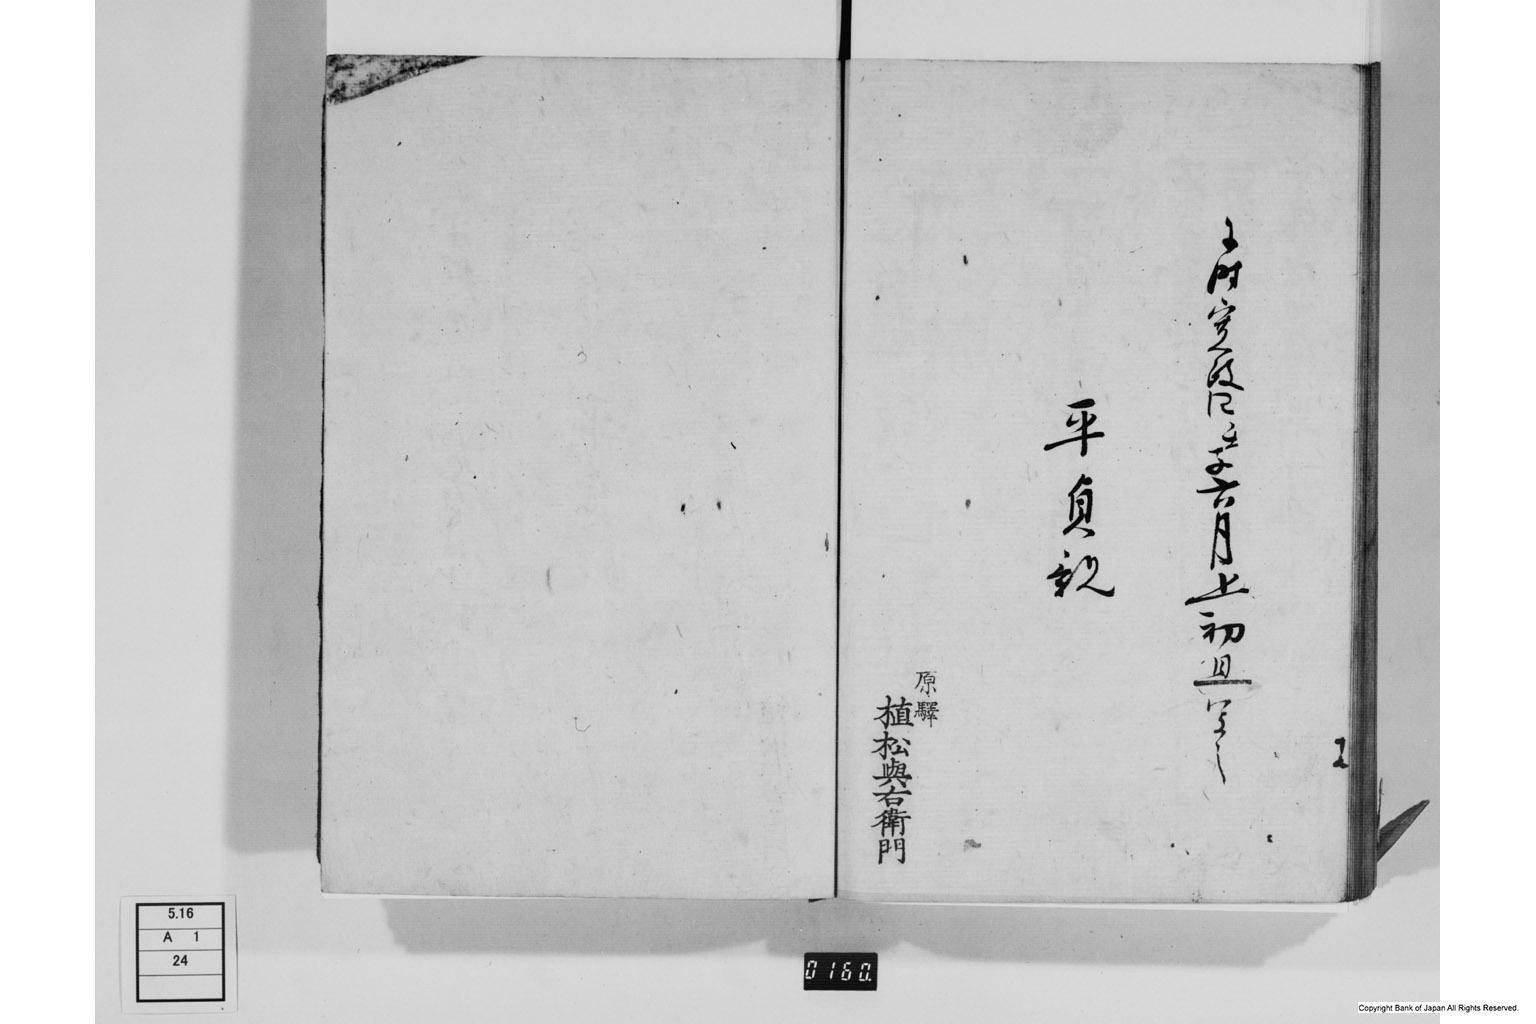 于時寛政四壬子六月上初旦写之
平貞親
原驛
植松與右衛門
5.16
A 1
24
0160.
Copyright Bank of Japan All Rights Reserved.